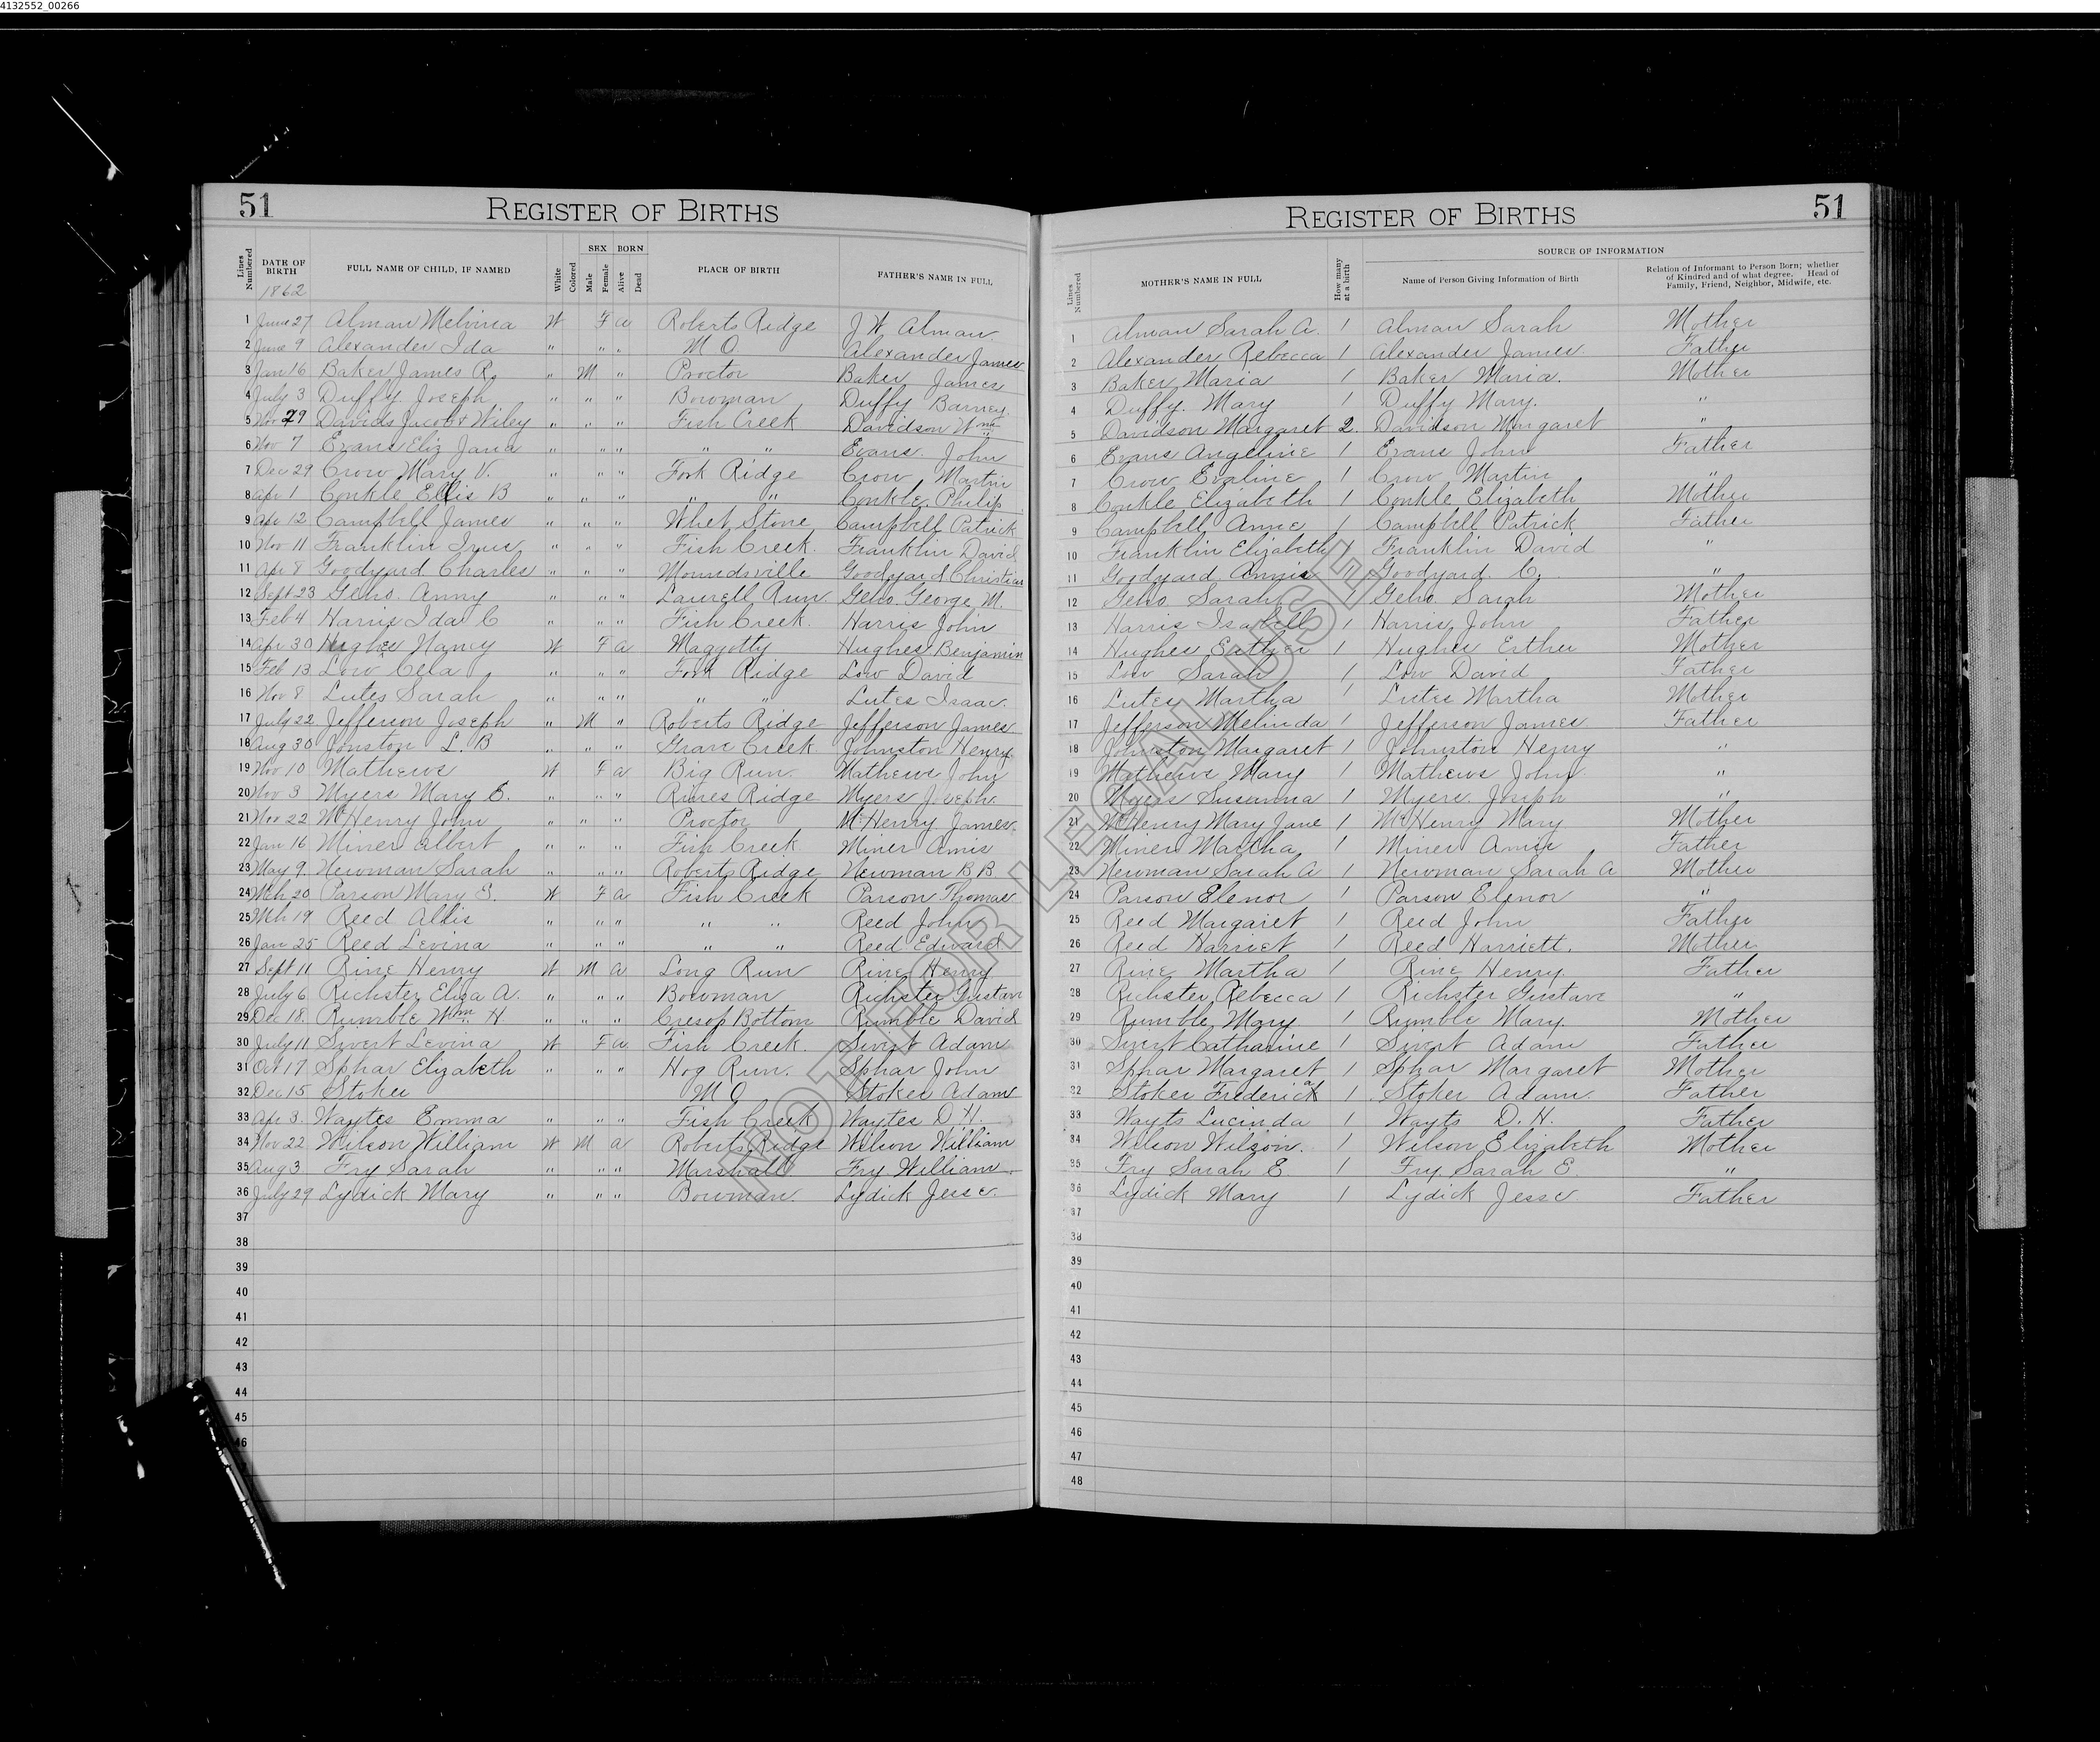 4132552_00266
51 REGISTER OF BIRTHS
Lines Numbered DATE OF BIRTH FULL NAME OF CHILD, IF NAMED White Colored SEX Male Female BORN Alive Dead PLACE OF BIRTH FATHER'S NAME IN FULL
1862
1 June 27 Alman Melvina W F a Roberts Ridge J W Alman
2 June 9 Alexander Ida " " " M O Alexander James
3 Jan 16 Baker James R. " M " Proctor Baker James
4 July 3 Duffy Joseph " " " Bowman Duffy Barney
5 Nov 29 Davids Jacob & Wiley " " " Fish Creek Davidson Wm
6 Nov 7 Evans Eliz Jana " " " " " Evans. John
7 Dec 29 Crow Mary V. " " " Fork Ridge Crow Martin
8 Apr 1 Conkle Ellis B " " " " " Conkle. Philip
9 Apr 12 Campbell James " " " Whet Stone Campbell Patrick
10 Nov 11 Franklin " " " Fish Creek. Franklin David
11 Apr 8 Goodyard Charles " " " Moundsville Goodyard Christian
12 Sept 23 Geho. Anny " " " Laurell Run Geho. George M.
13 Feb 4 Harris Ida C " " " Fish Creek. Harris John
14 Apr 30 Hughes Nancy W F a Maggotty Hughes Benjamin
15 Feb 13 Low Cela " " " Fork Ridge Low David
16 Nov 8 Lutes Sarah " " " " " Lutes Isaac.
17 July 22 Jefferson Joseph " M " Roberts Ridge Jefferson James
18 Aug 30 Jonston L. B " " " Grave Creek Johnston Henry
19 Nov 10 Mathews W F a Big Run. Mathews John
20 Nov 3 Myers Mary E. " " " Rines Ridge Myers Joseph.
21 Nov 22 McHenry John " " " Proctor McHenry James
22 Jan 16 Miner Albert " " " Fish Creek Miner Amis
23 May 9. Newman Sarah " " " Roberts Ridge Newman B B.
24 Mch 20 Parson Mary E. W F a Fish Creek Parson Thomas
25 Mch 19 Reed Allis " " " " " Reed John
26 Jan 25 Reed Levina " " " " " Reed Edward
27 Sept 11 Rine Henry W M a Long Run Rine Henry
28 July 6 Richster Eliza A. " " " Bowman Richster Gustav
29 Dec 18. Rumble Wm. H " " " Cresop Bottom Rumble David
30 July 11 Sivert Levina W F a Fish Creek. Sivert Adam
31 Oct 17 Sphar Elizabeth " " " Hog Run. Sphar John
32 Dec 15 Stoker M O Stoker Adam
33 Apr 3. Waytes Emma " " " Fish Creek Waytes D. H.
34 Nov 22 Wilson William W M a Roberts Ridge Wilson William
35 Aug 3 Fry Sarah " " " Marshall Fry William
36 July 29 Lydick Mary " " " Bowman. Lydick Jesse.
37
38
39
40
41
42
43
44
45
46
REGISTER OF BIRTHS 51
Lines Numbered MOTHER'S NAME IN FULL How many at a birth SOURCE OF INFORMATION
Name of Person Giving Information of Birth Relation of Informant to Person Born; whether of Kindred and of what degree. Head of Family, Friend, Neighbor, Midwife, etc.
1 Alman Sarah A. 1 Alman Sarah Mother
2 Alexander Rebecca 1 Alexander James. Father
3 Baker Maria 1 Baker Maria. Mother
4 Duffy. Mary 1 Duffy Mary. "
5 Davidson Margaret 2. Davidson Margaret "
6 Evans Angeline 1 Evans John Father
7 Crow Evaline 1 Crow Martin "
8 Conkle Elizabeth 1 Conkle Elizabeth Mother
9 Campbell Anne 1 Campbell Patrick Father
10 Franklin Elizabeth 1 Franklin David "
11 Goodyard Annie 1 Goodyard. C. "
12 Geho. Sarah 1 Geho Sarah Mother
13 Harris Isabell 1 Harris John Father
14 Hughes Eather 1 Hughes Esther Mother
15 Low Sarah 1 Low David Father
16 Lutes Martha 1 Lutes Martha Mother
17 Jefferson Melinda 1 Jefferson James Father
18 Johnston Margaret 1 Johnston Henry "
19 Mathews Mary 1 Mathews John "
20 Myers Susanna 1 Myers. Joseph "
21 McHenry Mary Jane 1 McHenry Mary Mother
22 Miner Martha 1 Miner Amis Father
23 Newman Sarah A 1 Newman Sarah A Mother
24 Parson Elenor 1 Parson Elenor "
25 Reed Margaret 1 Reed John Father
26 Reed Harriet 1 Reed Harriett. Mother
27 Rine Martha 1 Rine Henry Father
28 Richster Rebecca 1 Richster Gustave "
29 Rumble Mary 1 Rumble Mary. Mother
30 Sivert Catharine 1 Sivert Adam Father
31 Sphar Margaret 1 Sphar Margaret Mother
32 Stoker Fredericka 1 Stoker Adam. Father
33 Wayts Lucinda 1 Wayts D. H. Father
34 Wilson Wilson. 1 Wilson Elizabeth Mother
35 Fry Sarah E. 1 Fry Sarah E. "
36 Lydick Mary 1 Lydick Jesse Father
37
38
39
40
41
42
43
44
45
46
47
48
NOT FOR LEGAL USE